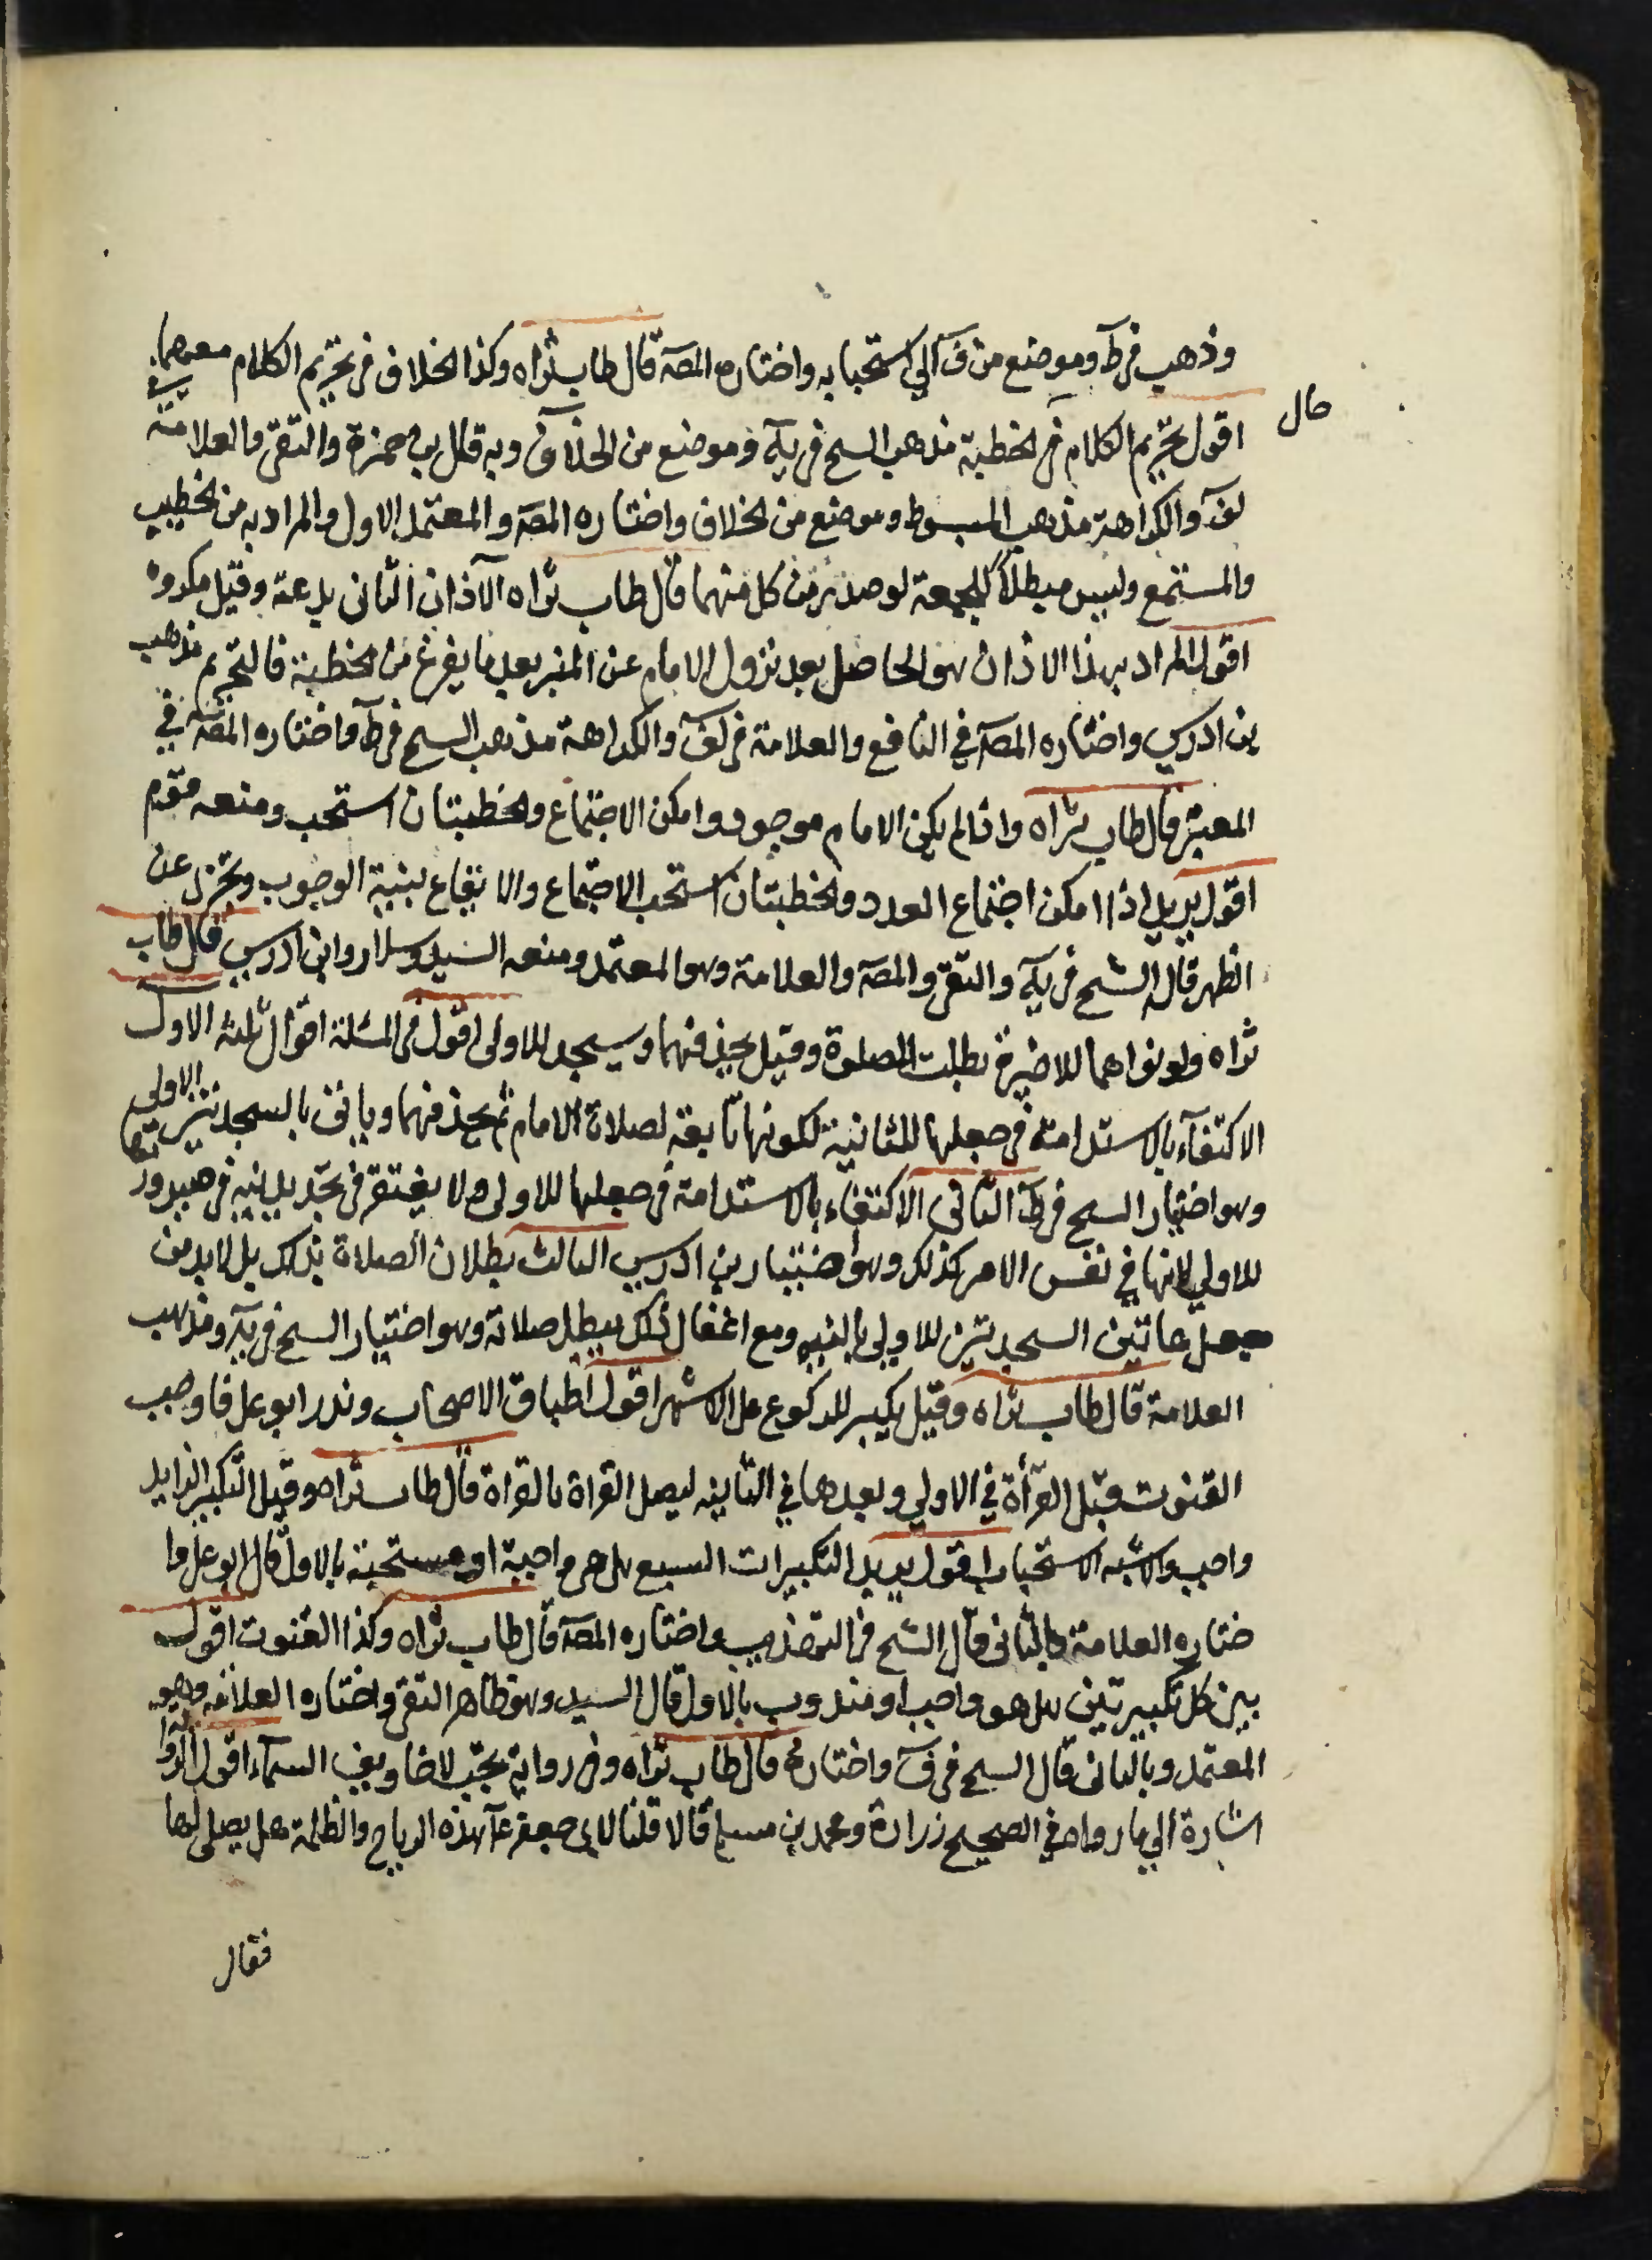 وذهب في ط وموضع من ف الي استحبابه واختاره المصه قال طاب ثراه وكذا الخلاف في تحريم الكلام معهما
اقول تحريم الكلام في الخطبة مذهب الشيخ في يه وموضع من الخلاف وبه قال بن حمزة والتقي والعلامة في
حال
لف والكراهة مذهب المبسوط وموضع من الخلاف واختاره المصه والمعتمد الاول والمراد به من الخطيب
والمستمع وليس مبطلا للجمعة لو صدر من كل منهما قال طاب ثراه الآذان الثانى بدعة وقيل مكروه
اقول المراد بهذا الاذان هو الحاصل بعد نزول الامام عن المنبر بعد ما يفرغ من الخطبة فالتحريم مذهب
بن ادريس واختاره المصه في النافع والعلامة في لف والكراهة مذهب الشيخ في ط واختاره المصه في
المعتبر قال طاب ثراه واذا لم يكن الامام موجود وامكن الاجتماع والخطبتان استحب ومنعه قوم
اقول يريد اذا امكن اجتماع العدد والخطبتان استحب الاجتماع والايقاع بنية الوجوب وتجزي عن
الظهر قاله الشيخ في يه والتقي والمصه والعلامة وهو المعتمد ومنعه السيد وسلار وابن ادريس قال طاب
ثراه ولو نواهما للاخيرة بطلت الصلوة وقيل يحذفهما ويسجد للاولى اقول في المسئلة اقوال ثلثه الاول
الاكتفآء بالاستدامة في جعلها للثانية لكونها تابعة لصلاة الامام ثم يحذفهما وياتى بالسجدتين للاولى
وهو اختيار الشيخ في ط الثانى الاكتفاء بالاستدامة في جعلها للاولى ولا يفتقر في تجديد نيه في صيرورتها
للاولي لانها في نفس الامر كذلك وهو اختيار بن ادريس الثالث بطلان الصلاة بذلك بل لابد من
جعل هاتين السجدتين للاولى بالنيه ومع اغفال ذلك يبطل صلاته وهو اختيار الشيخ في يه ومذهب
العلامة قال طاب ثراه وقيل يكبر للركوع على الاشهر اقول اطباق الاصحاب وندر ابو على فاوجب
القنوت قبل القرأة في الاولي وبعدها في الثانيه ليصل القراة بالقراة قال طاب ثراه وقيل التكبير الزايد
واجب والاشبه الاستحباب اقول يريد التكبيرات السبع هل هى واجبة او مستحبة بالاول قال ابو على وا
ختاره العلامة وبالثانى قال الشيخ في التهذيب واختاره المصه قال طاب ثراه وكذا القنوت اقول
بين كل تكبيرتين هل هو واجب او مندوب بالاول قال السيد وهو ظاهر التقي واختاره العلامه وهو
المعتمد وبالثانى قال الشيخ في ف واختاره قال طاب ثراه وفي رواية تجب لاخاويف السمآء اقول الروا
اشارة الي ما رواه في الصحيح زرارة ومحمد بن مسلم قالا قلنا لابى جعفر ع هذه الرياح والظلمة هل يصلى لها
فقال